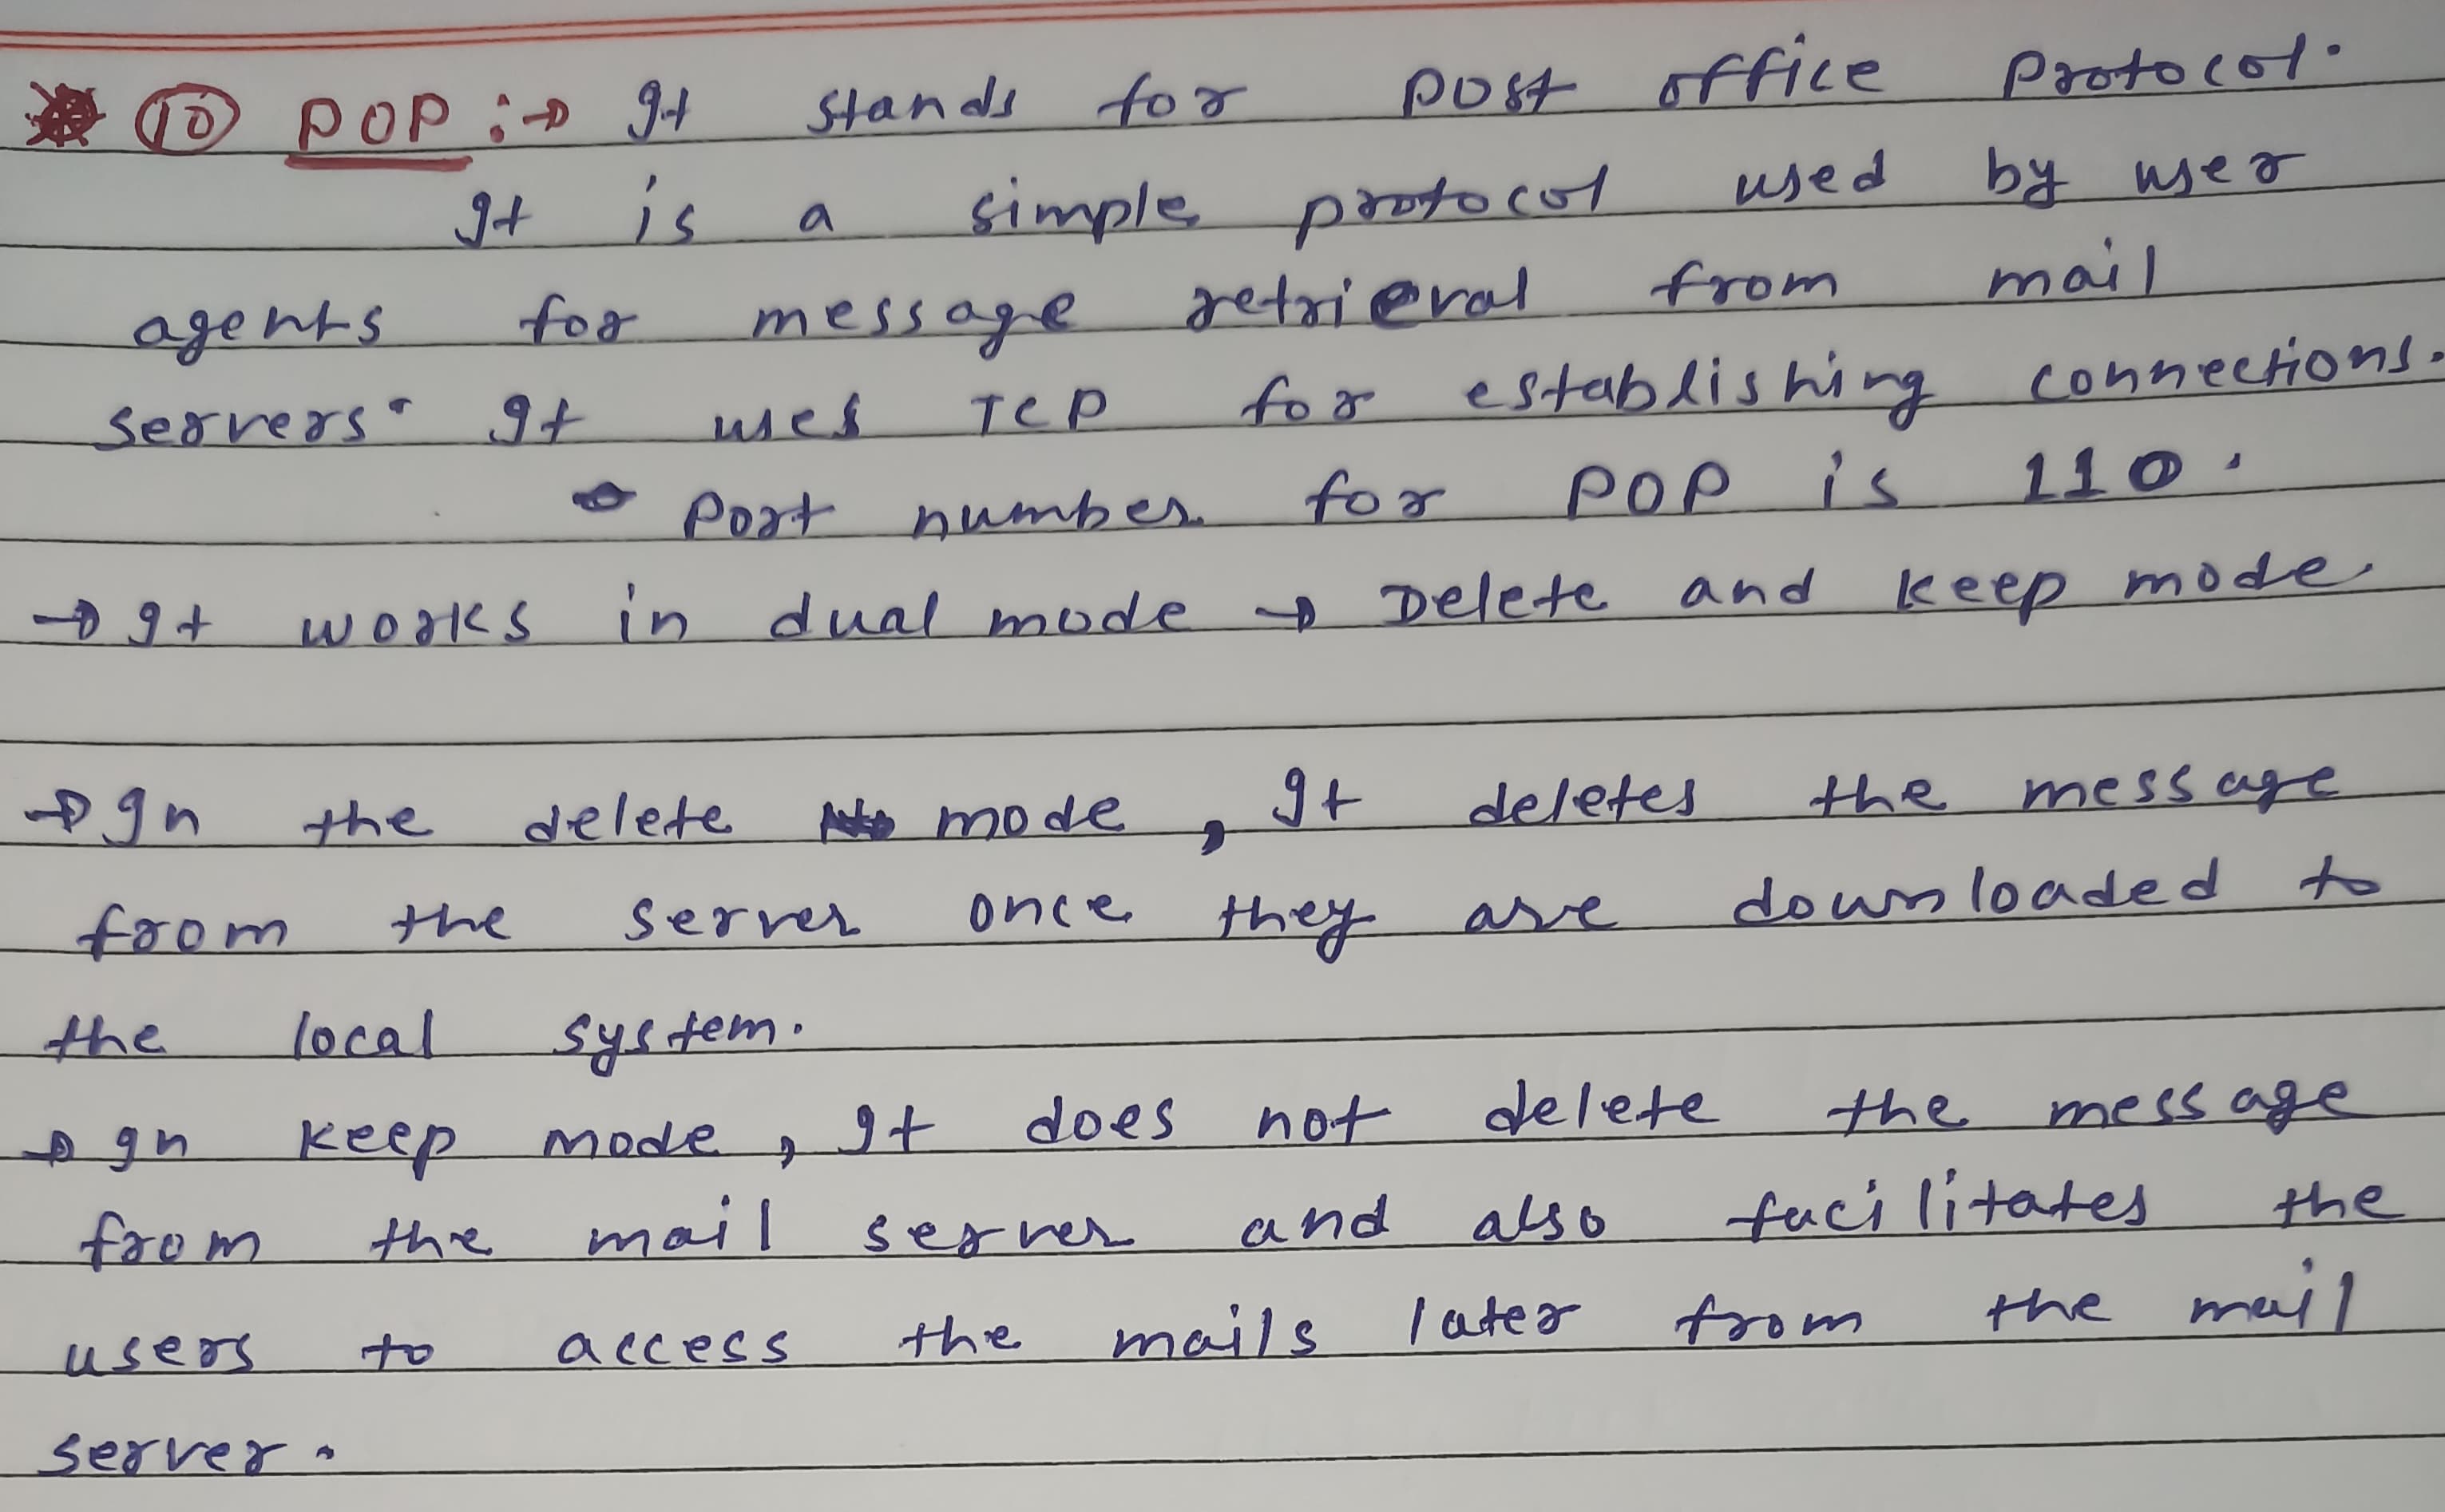 ⑩ POP :→ It stands for Post office Protocol.
It is a simple protocol used by user
agents for message retrieval from mail
servers. It uses TCP for establishing connections.
Port number for POP is 110.
→ It works in dual mode → Delete and keep mode.
→ In the delete mode, It deletes the message
from the server once they are downloaded to
the local system.
→ In keep mode, It does not delete the message
from the mail server and also facilitates the
users to access the mails later from the mail
server.